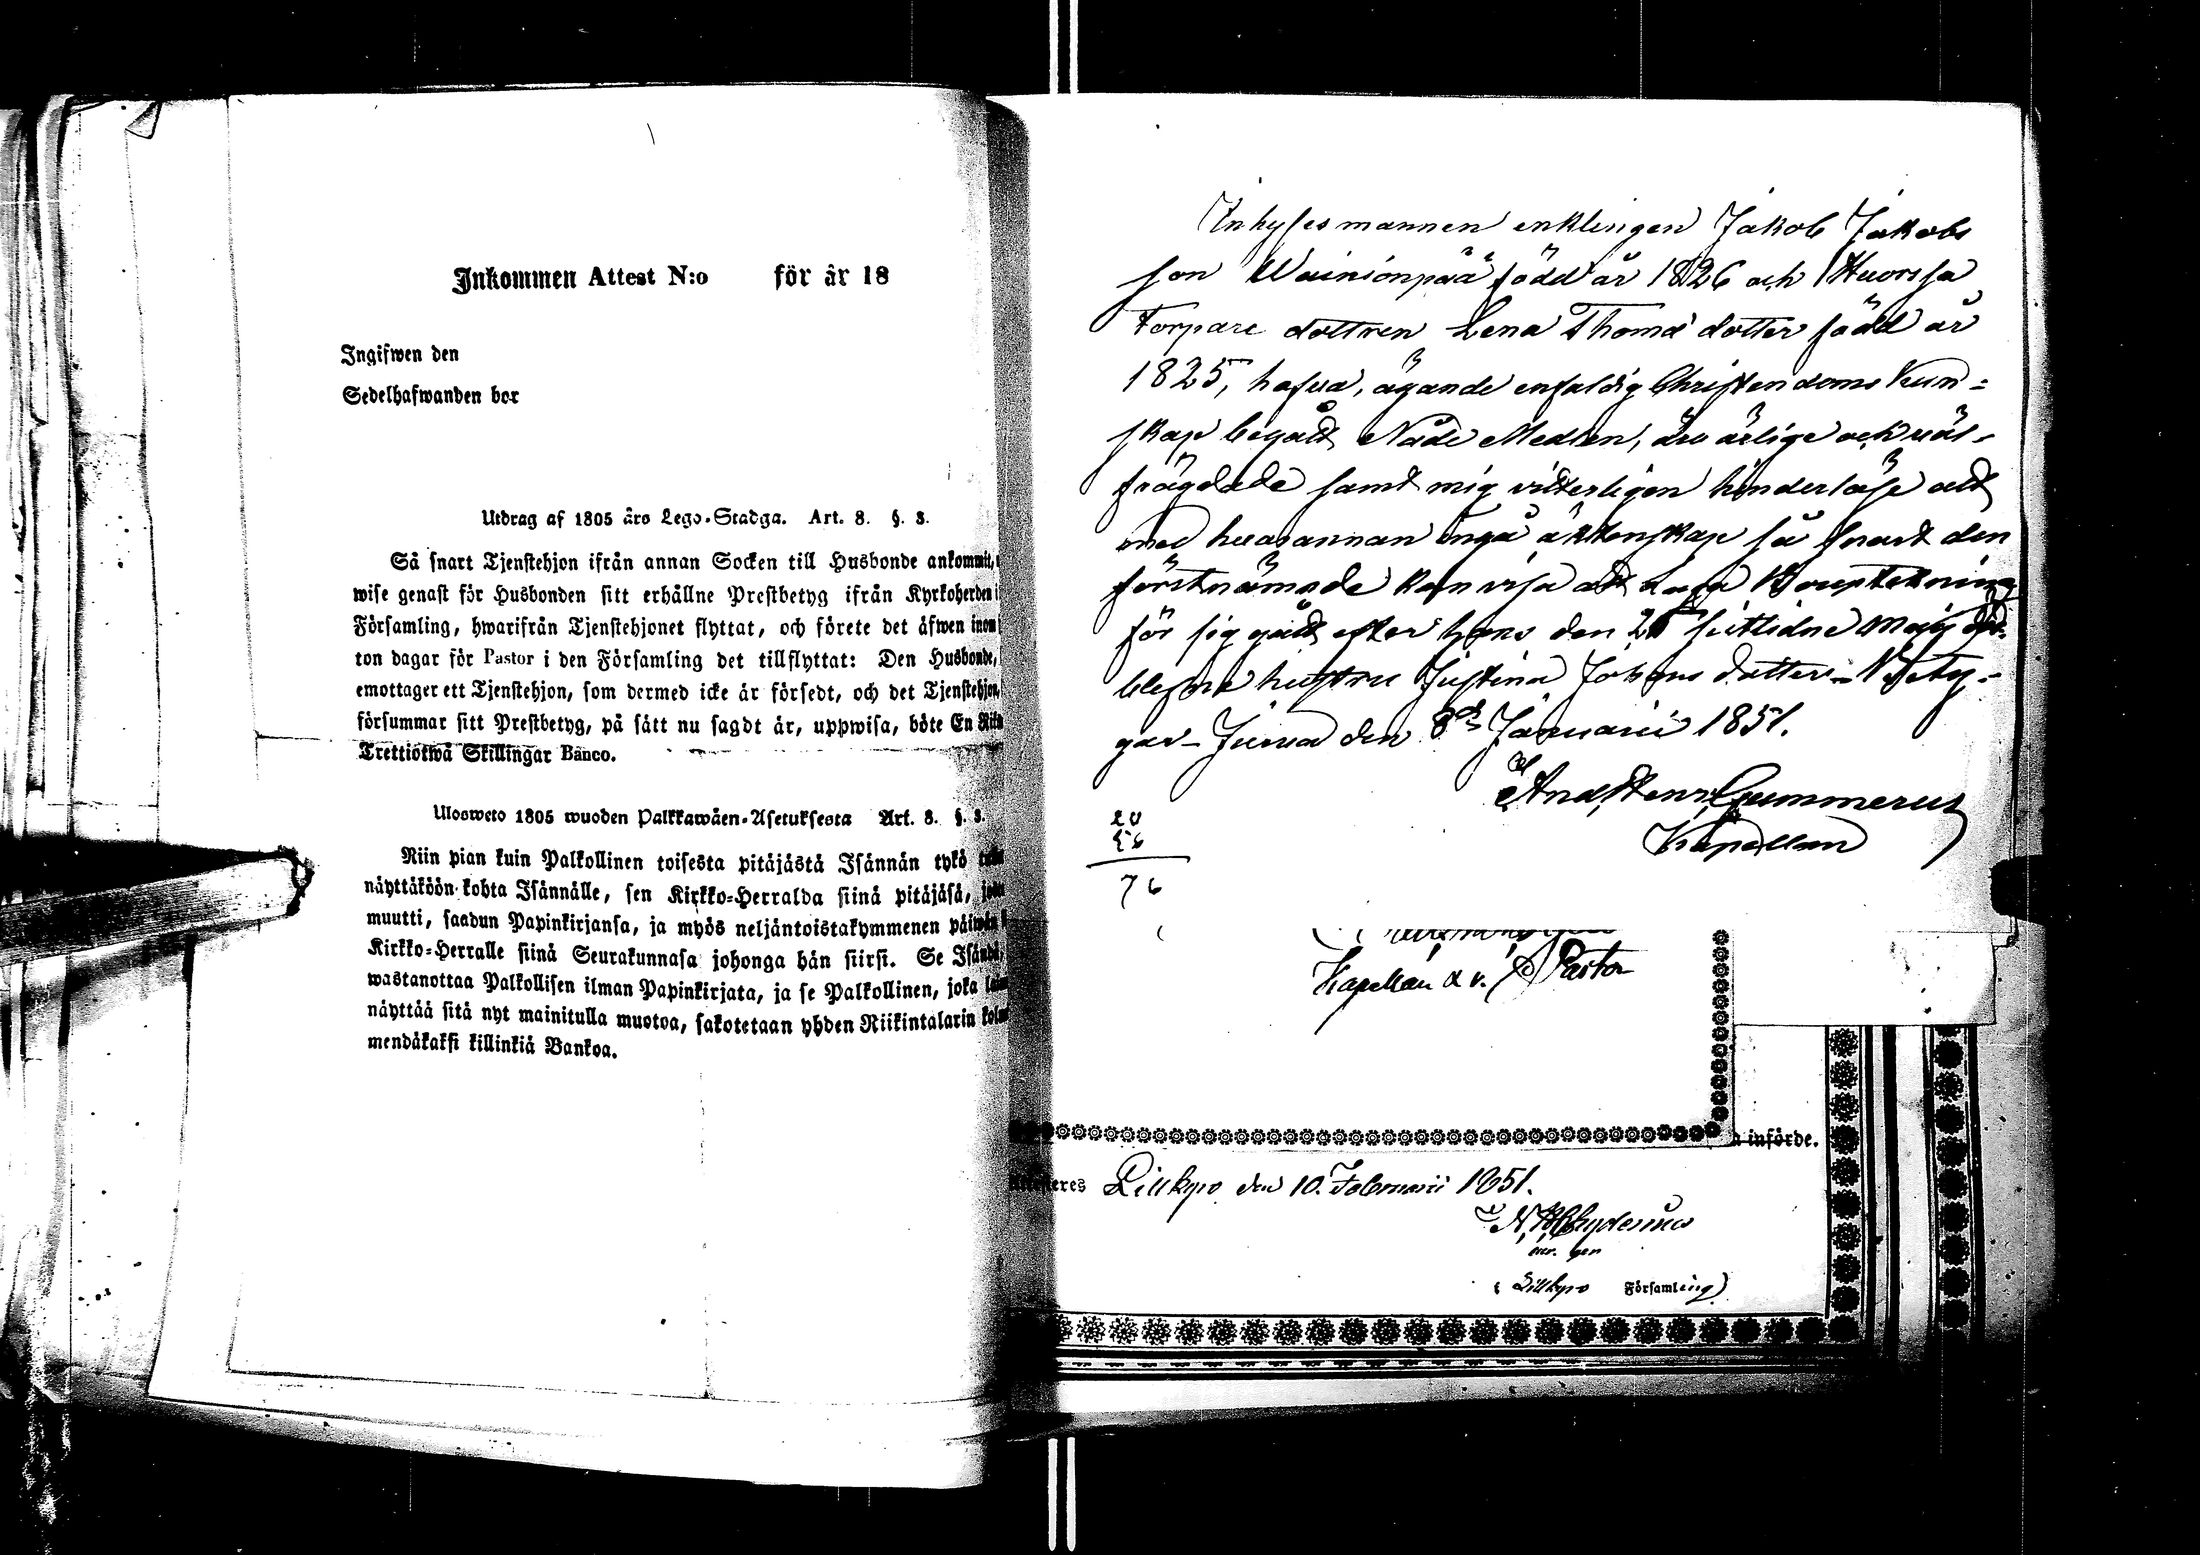 Inkommen Attest N:o för år 18
Ingifwen den
Sedelhafwanden bor
Utdrag af 1805 års Lego-Stadga. Art. 8. §. 3.
Så snart Tjenstehjon ifrån annan Socken till Husbonde ankommit,
wise genast för Husbonden sitt erhållne Prestbetyg ifrån Kyrkoherden i
Församling, hwarifrån Tjenstehjonet flyttat, och förete det äfwen inom
ton dagar för Pastor i den Församling det tillflyttat: Den Husbonde,
emottager ett Tjenstehjon, som dermed icke är försedt, och det Tjenstehjon,
försummar sitt Prestbetyg, på sätt nu sagdt är, uppwisa, böte En Riks
Trettiotwå Skillingar Banco.
Ulosweto 1805 wuoden Palkkawäen-Asetuksesta Art. 8. §. 3.
Niin pian kuin Palkollinen toisesta pitäjästä Isännän tykö
näyttäköön kohta Isännälle, sen Kirkko-Herralda siinä pitäjäsä,
muutti, saadun Papinkirjansa, ja myös neljäntoistakymmenen päiwän
Kirkko-Herralle siinä Seurakunnasa johonga hän siirsi. Se Isändä,
wastanottaa Palkollisen ilman Papinkirjata, ja se Palkollinen, joka
näyttää sitä nyt mainitulla muotoa, sakotetaan yhden Riikintalarin kolm
mendäkaksi killinkiä Bankoa.
Inhyses mannen enklingen Jakob Jakobs
son Wainionpää född år 1826 och
Torpare dottren Lena Thomä dotter född år
1825, hafva, ägande enfaldig Christendoms Kun-
skap begått Nåde Medlen, äro ärlige och väl-
frägdade samt mig vitterligen hinderlöse att
med hvarannan ingå äktenskap så snart den
förstnämnde kan visa att laga Bouptekning
för sig gått efter hans den sistlidne Maij
blefne hustru Justina Johans dotter. Bety-
gar Jurva den 8de Januarii 1851.
And. Sten. Gummerus
Kapellan
20
56
76
Kapellan & v. Pastor
införde.
Attesteres Lillkyro den 10. Februarii 1851.
N. Chydenius
(Lillkyro Församling)